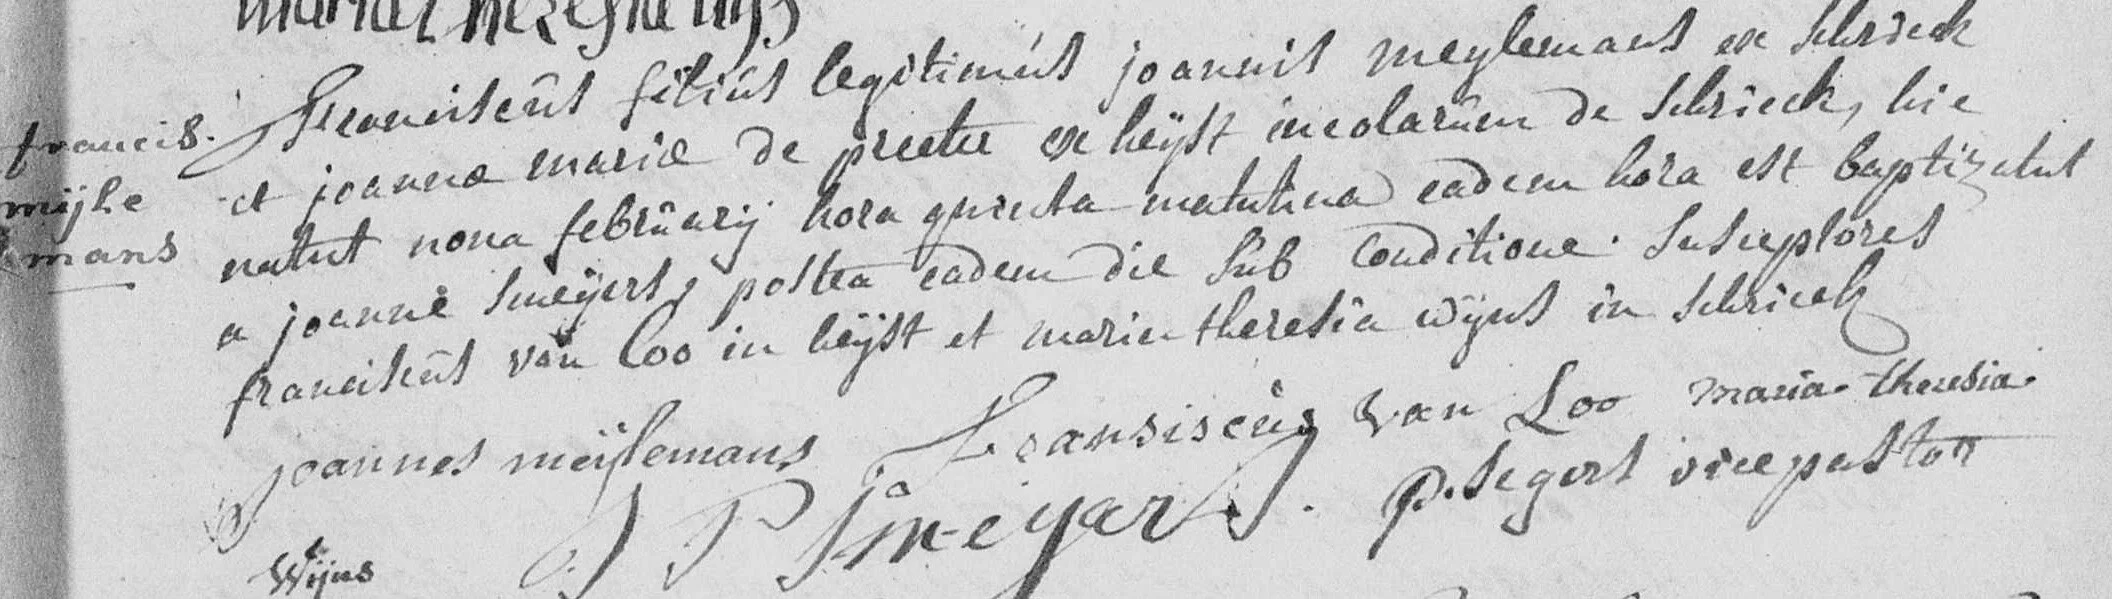 francis.
mijle
mans
Franciscus filius legitimus joannis meylemans ex schrieck
et joannæ mariæ de preter ex heijst incolarum de schrieck, hic
natus nona februarij hora quinta matutina eadem hora est baptizatus
a joanne smeijers, postea eadem die sub conditione. susceptores
franciscus van loo in heijst et maria theresia wijns in schrieck
joannes meijlemans Fransiscus van Loo maria theresia
Wijns J P Smeyars. P. Segers vice pastor